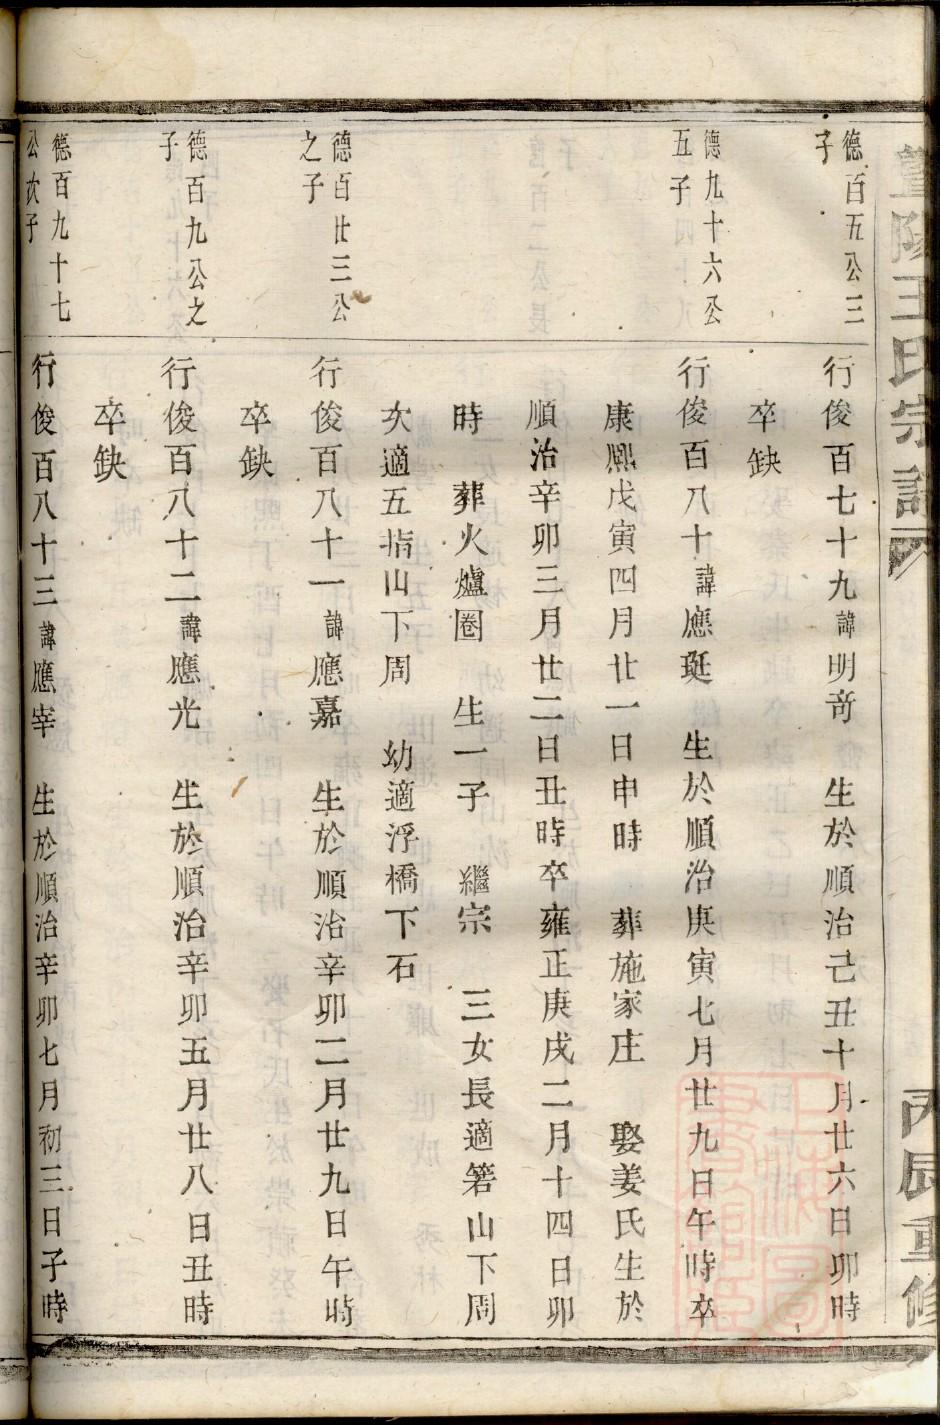 暨陽王氏宗譜
丙辰重修
德百五公三
子
行俊百七十九諱明奇 生於順治己丑十月廿六日卯時
卒缺
德九十六公
五子
行俊百八十諱應珽 生於順治庚寅七月廿九日午時卒
康熙戊寅四月廿一日申時 葬施家庄 娶姜氏生於
順治辛卯三月廿二日丑時卒雍正庚戌二月十四日卯
時 葬火爐圈 生一子 繼宗 三女長適箬山下周
次適五指山下周 幼適浮橋下石
德百廿三公
之子
行俊百八十一諱應嘉 生於順治辛卯二月廿九日午時
卒缺
德百九公之
子
行俊百八十二諱應光 生於順治辛卯五月廿八日丑時
卒缺
德百九十七
公次子
行俊百八十三諱應宰 生於順治辛卯七月初三日子時